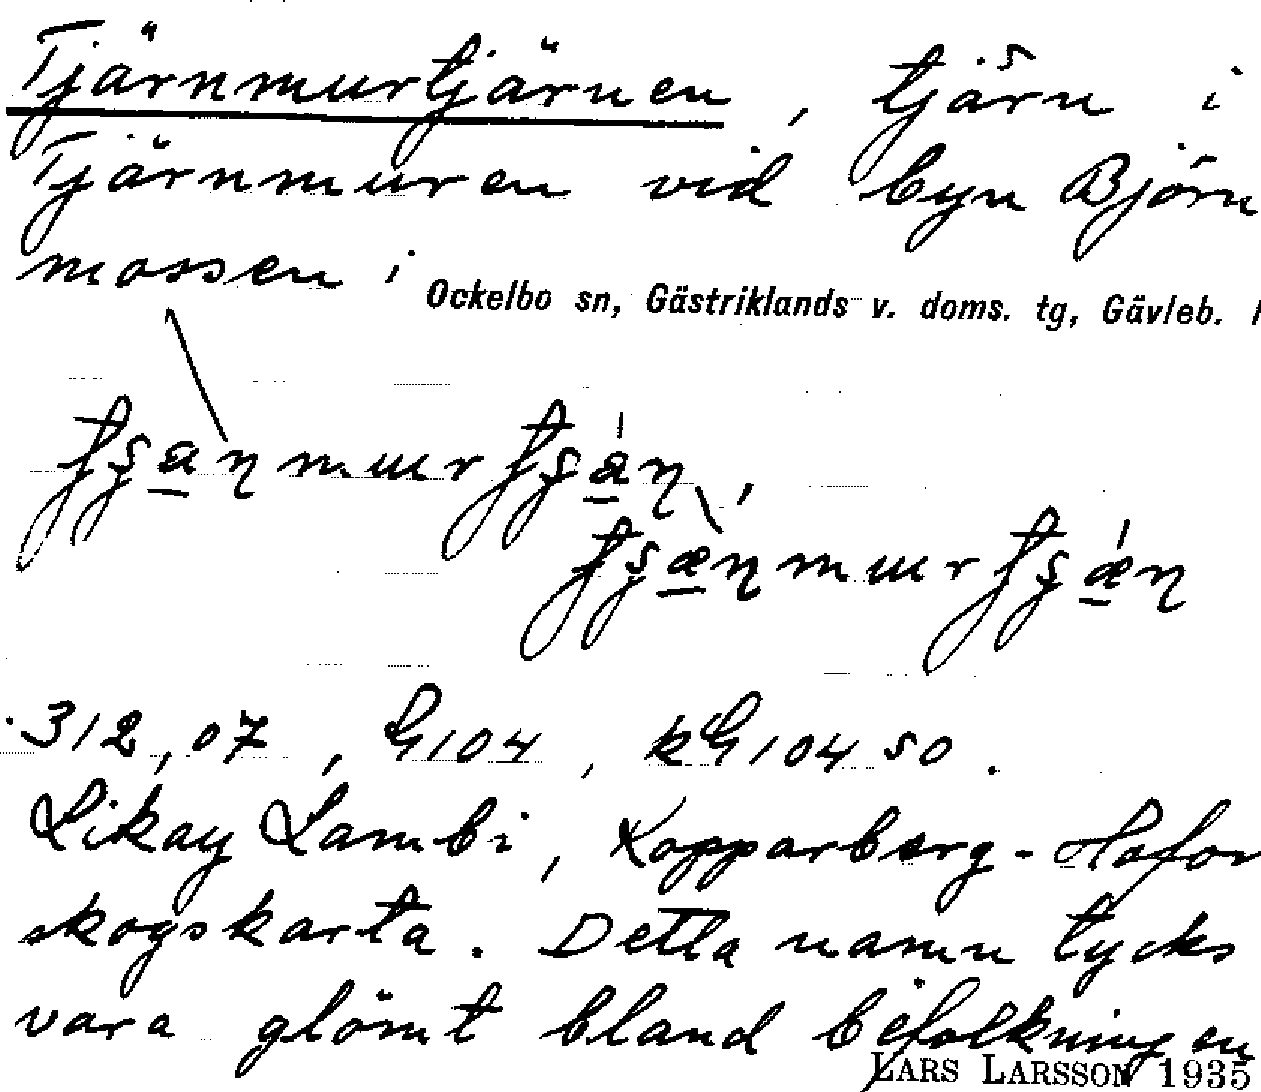 Tjärnmurtjärnen, tjärn i
Tjärnmuren vid byn Björn
mossen i Ockelbo sn, Gästriklands v. doms. tg, Gävleb. l
312,07, G104, kG104 SO.
Likay Lambi, Kopparberg-Hofor
skogskarta. Detta namn tycks
vara glömt bland befolkningen
LARS LARSSON 1935